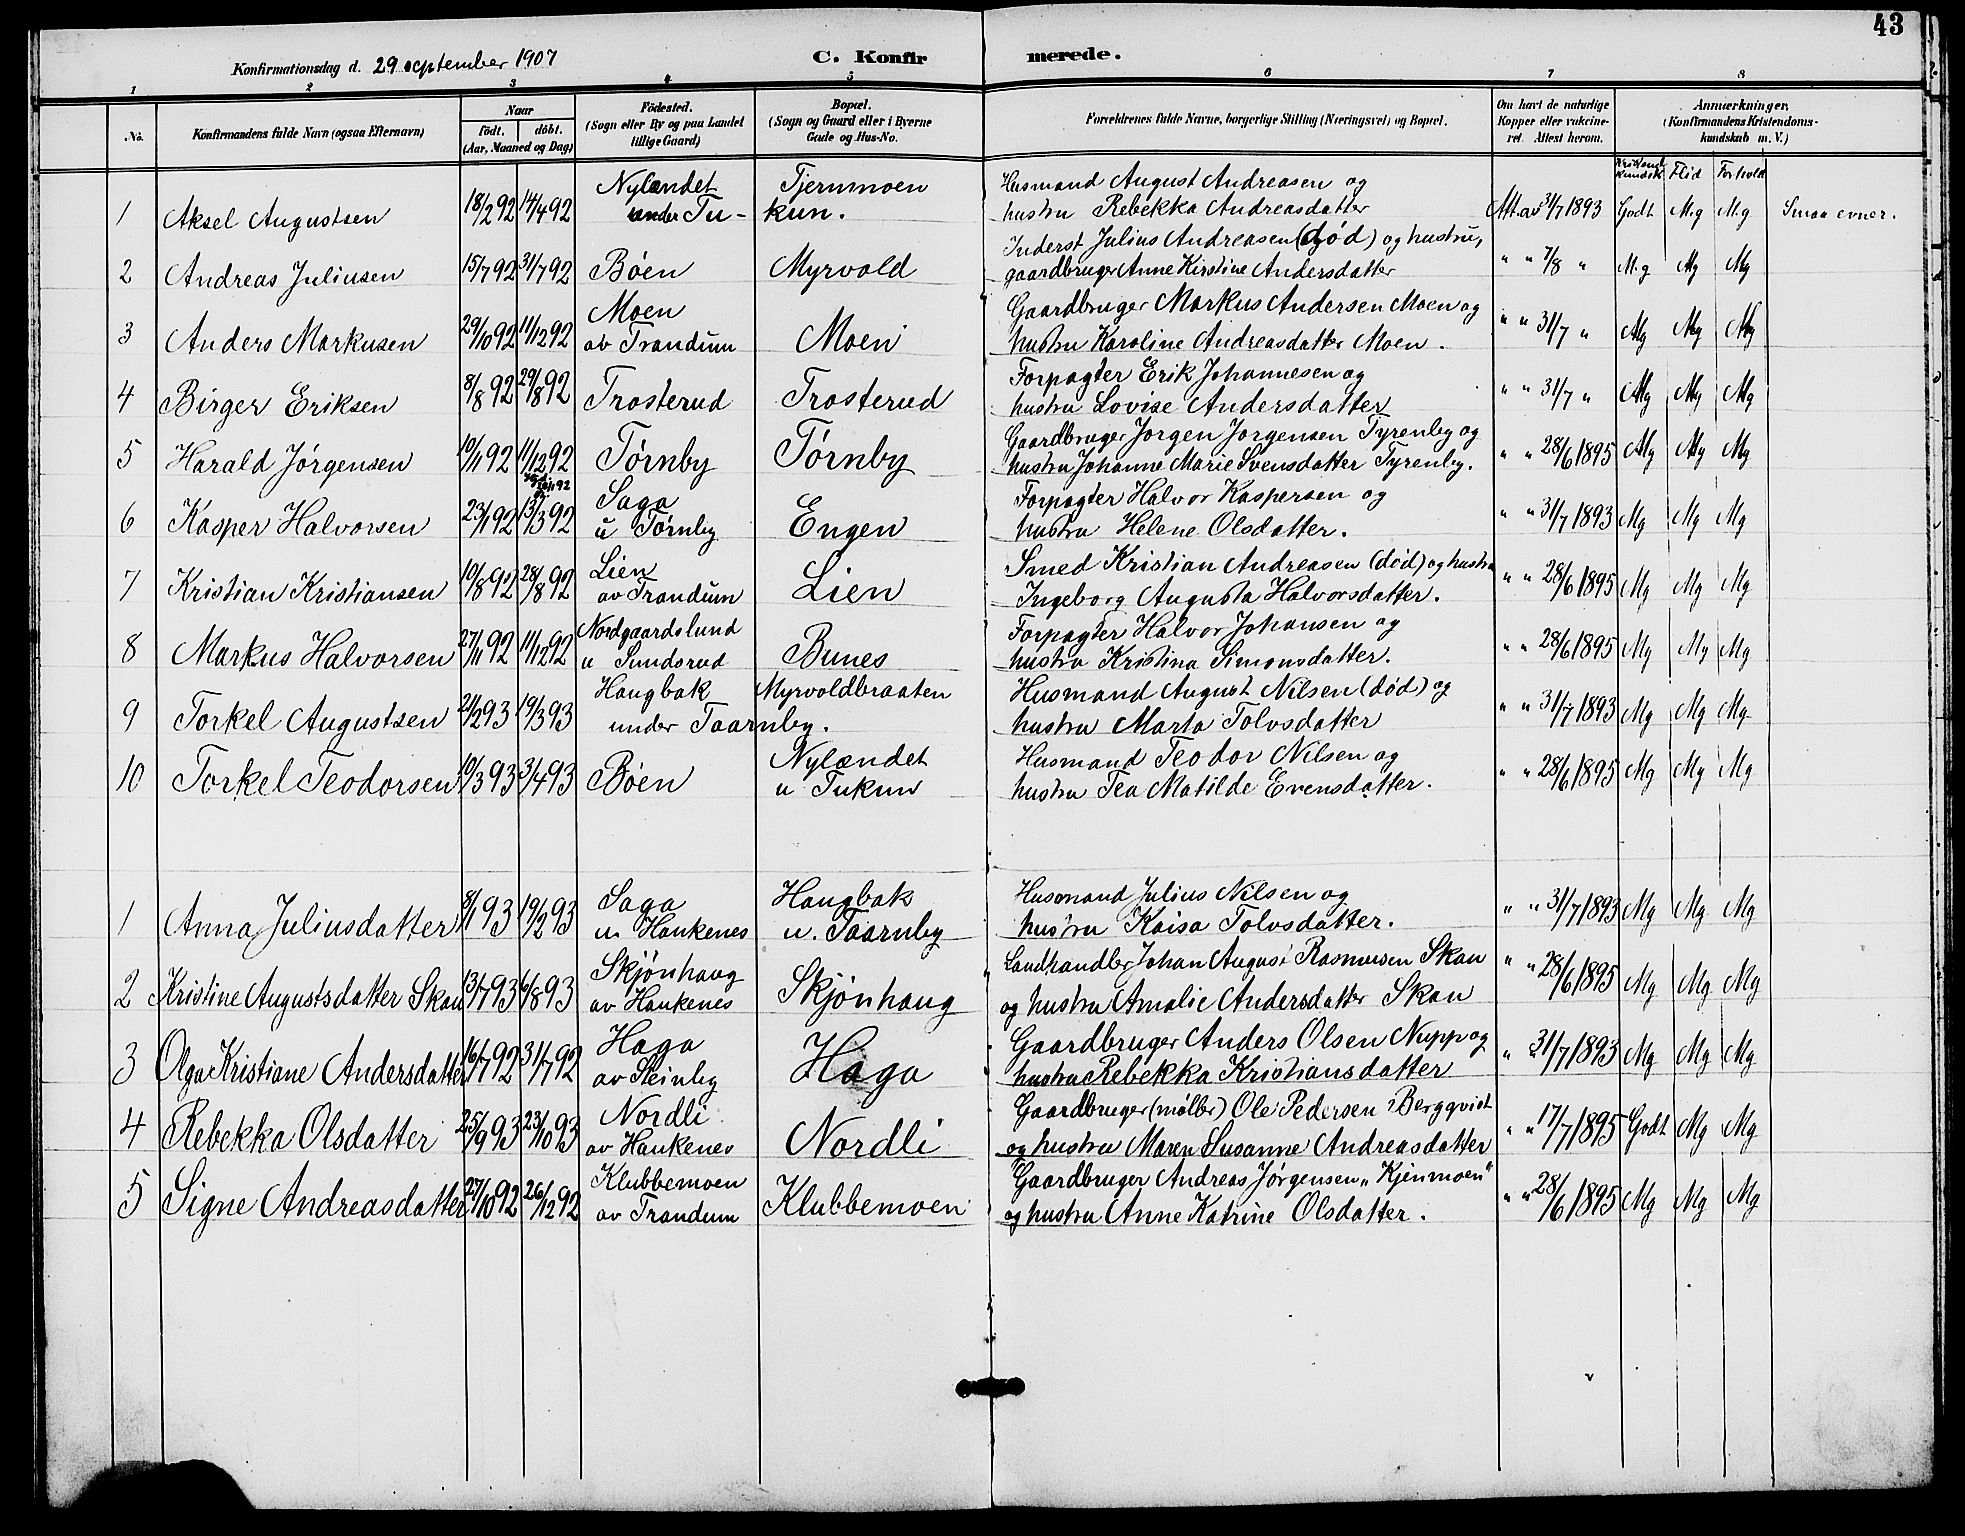 43
Konfirmationsdag d. 29 september 1907 C. Konfirmerede.
1 2 3 4 5 6 7 8
No. Konfirmandens fulde Navn (ogsaa Efternavn) Naar født. døbt. (Aar, Maaned og Dag) Fødested. (Sogn eller By og paa Landet tillige Gaard) Bopæl. (Sogn og Gaard eller i Byerne Gade og Hus-No. Forældrenes fulde Navne, borgerlige Stilling (Næringsvei) og Bopæl. Om havt de naturlige Kopper eller vakcineret. Attest herom. Anmærkninger. (Konfirmandens Kristendomskundskab m. V.)
Kristend kundsk Flid Forhold
1 Aksel Augustsen 18/2 92 14/4 92 Nylændet under Tukun. Tjernmoen Husmand August Andreasen og
hustru Rebekka Andreasdatter Att. av 31/7 1893 Godt M.g M.g Smaa evner.
2 Andreas Juliusen 15/7 92 31/7 92 Bøen Myrvold Inderst Julius Andreasen (død) og hustru,
gaardbruger Anne Kirstine Andersdatter " " 7/8 " M.g Mg Mg
3 Anders Markusen 29/10 92 11/12 92 Moen av Trandum Moen Gaardbruger Markus Andersen Moen og
hustru Karoline Andreasdatter Moen. " " 31/7 " Mg Mg Mg
4 Birger Eriksen 8/8 92 29/8 92 Trosterud Trosterud Forpagter Erik Johannesen og
hustru Lovise Andersdatter " " 31/7 " Mg Mg Mg
5 Harald Jørgensen 10/11 92 11/12 92 Tørnby Tørnby Gaardbruger Jørgen Jorgensen Tyrenby og
hustru Johanne Marie Svensdatter Tyrenby. " " 28/6 1895 Mg Mg Mg
6 Kasper Halvorsen 23/1 92 13/3 92 Saga u Tørnby Engen Forpagter Halvor Kaspersen og
hustru Helene Olsdatter. " " 31/7 1893 Mg Mg Mg
7 Kristian Kristiansen 10/8 92 28/8 92 Lien av Trandum Lien Smed Kristian Andreasen (død) og hustru
Ingeborg Augusta Halvorsdatter. " " 28/6 1895 Mg Mg Mg
8 Markus Halvorsen 27/11 92 11/12 92 Nordgaardslund u Sundsrud Bunes Forpagter Halvor Johansen og
hustru Kristina Simonsdatter. " " 28/6 1895 Mg Mg Mg
9 Torkel Augustsen 21/2 93 19/3 93 Haugbak under Taarnby. Myrvoldbraaten Husmand August Nilsen (død) og
hustru Marta Tolvsdatter " " 31/7 1893 Mg Mg Mg
10 Torkel Teodorsen 10/3 93 3/4 93 Bøen Nylændet u Tukun Husmand Teodor Nilsen og
hustru Tea Matilde Evensdatter. " " 28/6 1895 Mg Mg Mg
1 Anna Juliusdatter 8/1 93 19/2 93 Saga u. Haukenes Haugbak u. Taarnby Husmand Julius Nilsen og
hustru Kaisa Tolvsdatter. " " 31/7 1893 Mg Mg Mg
2 Kristine Augustsdatter Skau 13/7 93 6/8 93 Skjønhaug av Haukenes Skjønhaug Landhandler Johan August Rasmusen Skau
og hustru Amalie Andersdatter Skau " " 28/6 1895 Mg Mg Mg
3 Olga Kristiane Andersdatter 16/7 92 31/7 92 Haga av Steinby Haga Gaardbruger Anders Olsen Nupp og
hustru Rebekka Kristiansdatter " " 31/7 1893 Mg Mg Mg
4 Rebekka Olsdatter 25/9 93 23/10 93 Nordli av Haukenes Nordli Gaardbruger (møller) Ole Pedersen Bergqvist
og hustru Maren Susanne Andreasdatter " " 17/7 1895 Godt Mg Mg
5 Signe Andreasdatter 27/10 92 26/12 92 Klubbemoen av Trandum Klubbemoen Gaardbruger Andreas Jørgensen „Kjenmoen"
og hustru Anne Katrine Olsdatter. " " 28/6 1895 Mg Mg Mg